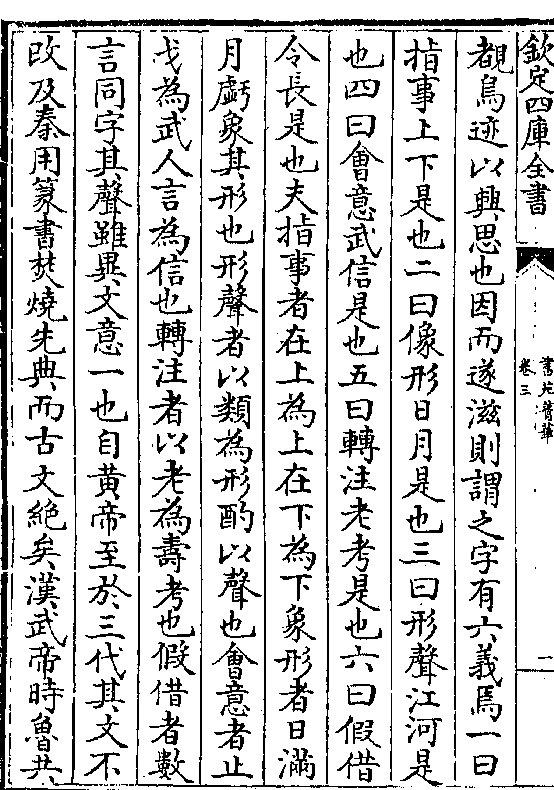 欽定四庫全書
書苑菁華
卷三
二
覩鳥迹以興思也因而遂滋則謂之字有六義焉一曰
指事上下是也二曰像形日月是也三曰形聲江河是
也四曰會意武信是也五曰轉注老考是也六曰假借
令長是也夫指事者在上為上在下為下象形者日滿
月虧象其形也形聲者以類為形酌以聲也會意者止
戈為武人言為信也轉注者以老為壽考也假借者數
言同字其聲雖異文意一也自黄帝至於三代其文不
改及秦用篆書焚燒先典而古文絶矣漢武帝時魯共